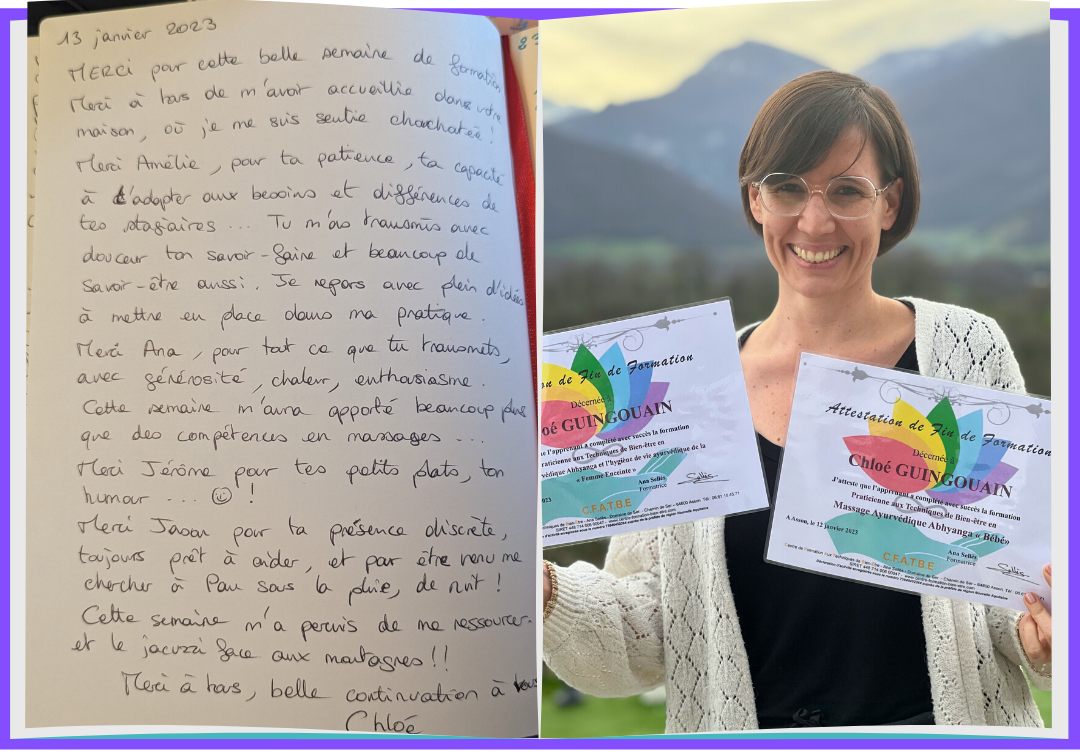 13 janvier 2023
MERCI pour cette belle semaine de formation
Merci à tous de m'avoir accueillie dans votre
maison, où je me suis sentie chouchoutée !
Merci Amélie, pour ta patience, ta capacité
à t'adapter aux besoins et différences de
tes stagiaires ... Tu m'as transmis avec
douceur ton savoir-faire et beaucoup de
savoir-être aussi. Je repars avec plein d'idées
à mettre en place dans ma pratique.
Merci Ana, pour tout ce que tu transmets,
avec générosité, chaleur, enthousiasme.
Cette semaine m'aura apporté beaucoup plus
que des compétences en massages ...
Merci Jérôme pour tes petits plats, ton
humour .... ☺ !
Merci pour ta présence discrète,
toujours prêt à aider, et pour être venu me
chercher à Pau sous la pluie, de nuit !
Cette semaine m'a permis de me ressourcer.
et le jacuzzi face aux montagnes !!
Merci à tous, belle continuation à vous
Chloé
on de Fin de Formation
Décernée à
oé GUINGOUAIN
que l'apprenant a complété avec succès la formation
raticienne aux Techniques de Bien-être en
yurvédique Abhyanga et l'hygiène de vie ayurvédique de la
« Femme Enceinte »
2023
Ana Sellès
Formatrice
C.F.A.T.B.E
Attestation de Fin de Formation
Décernée à
Chloé GUINGOUAIN
J'atteste que l'apprenant a complété avec succès la formation
Praticienne aux Techniques de Bien-être en
Massage Ayurvédique Abhyanga « Bébé»
A Asson, le 12 janvier 2023
Ana Sellès
Formatrice
C.F.A.T.B.E